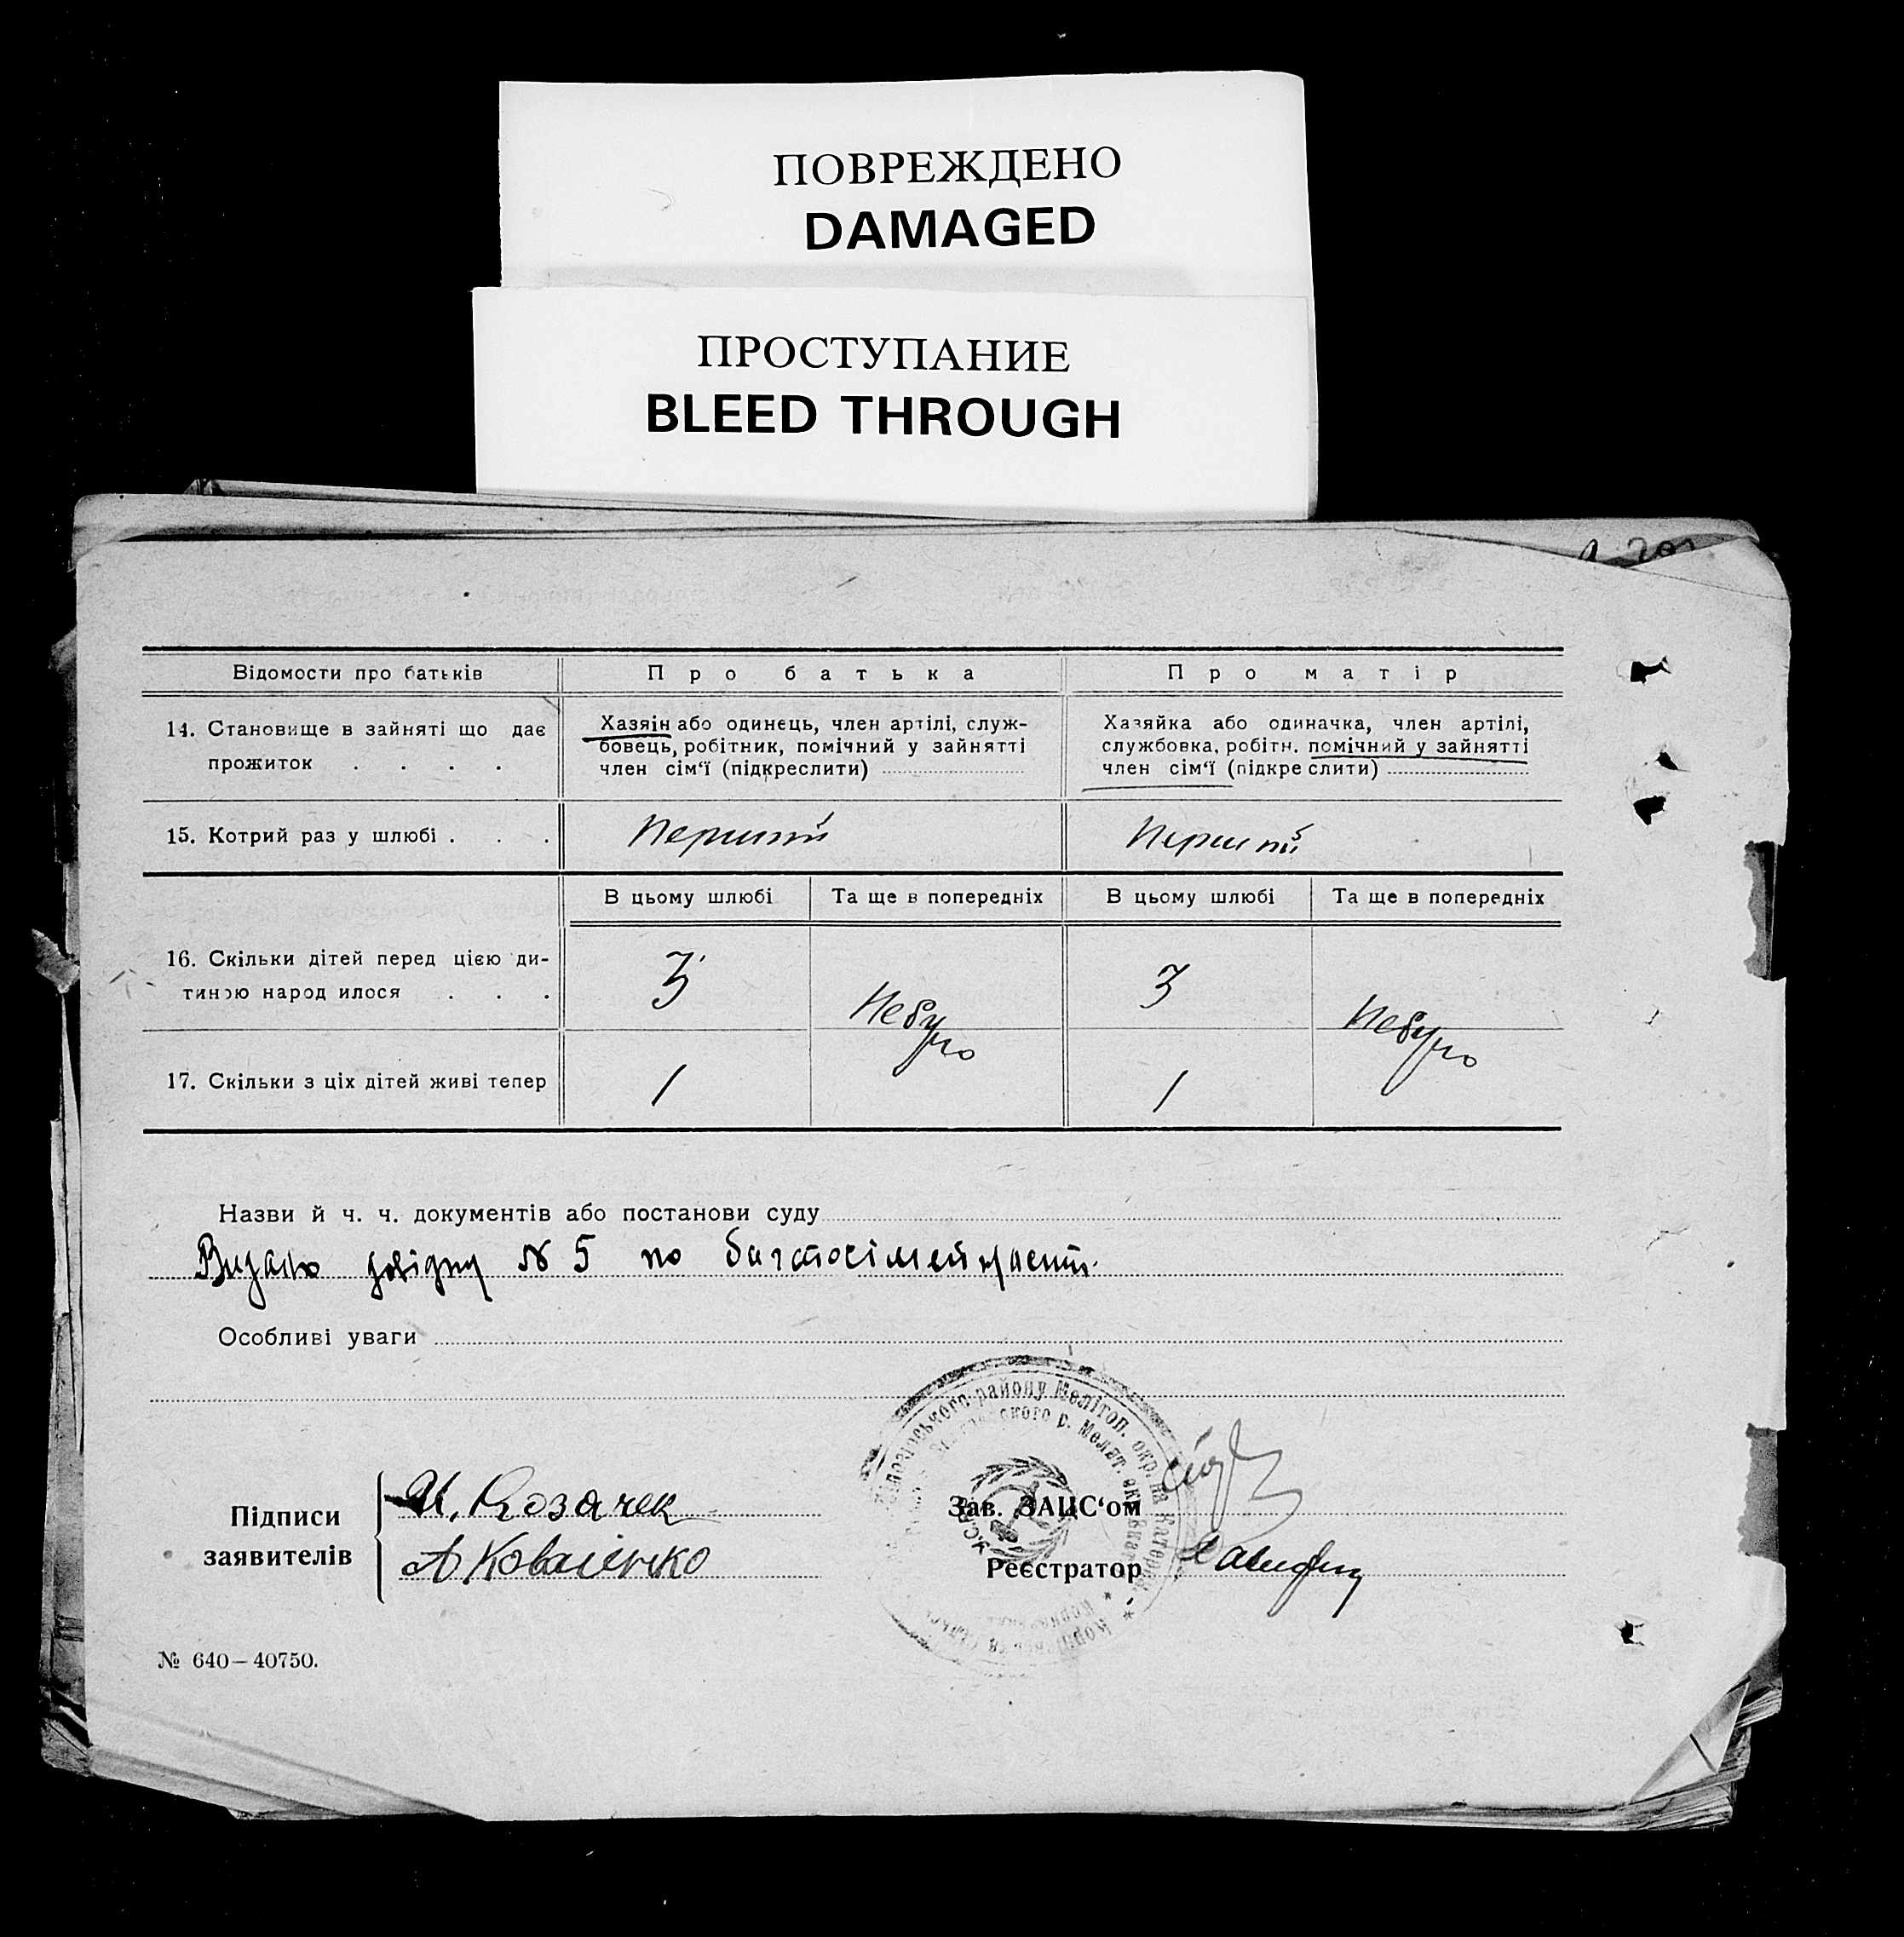 ПОВРЕЖДЕНО
DAMAGED
ПРОСТУПАНИЕ
BLEED THROUGH
Відомости про батьків
Про батька
Про матір
14. Становище в зайняті що дає
прожиток . . . .
Хазяін або одинець, член артілі, служ-
бовець, робітник, помічний у зайнятті
член сім‘ї (підкреслити)
Хазяйка або одиначка, член артілі,
службовка, робітн. помічний у зайнятті
член сім‘ї (підкреслити)
15. Котрий раз у шлюбі . . .
Перший
Перший
В цьому шлюбі
Та ще в попередніх
В цьому шлюбі
Та ще в попередніх
16. Скільки дітей перед цією ди-
тиною народилося . . .
3
Небуло
3
Небуло
17. Скільки з ціх дітей живі тепер
1
1
Назви й ч. ч. документів або постанови суду
Видано довідку № 5 по
Особливі уваги
району Мелітоп. окр. на
Підписи
заявителів
Козачек
А Коваленко
Зав. ЗАЦС‘ом
Реєстратор
№ 640–40750.